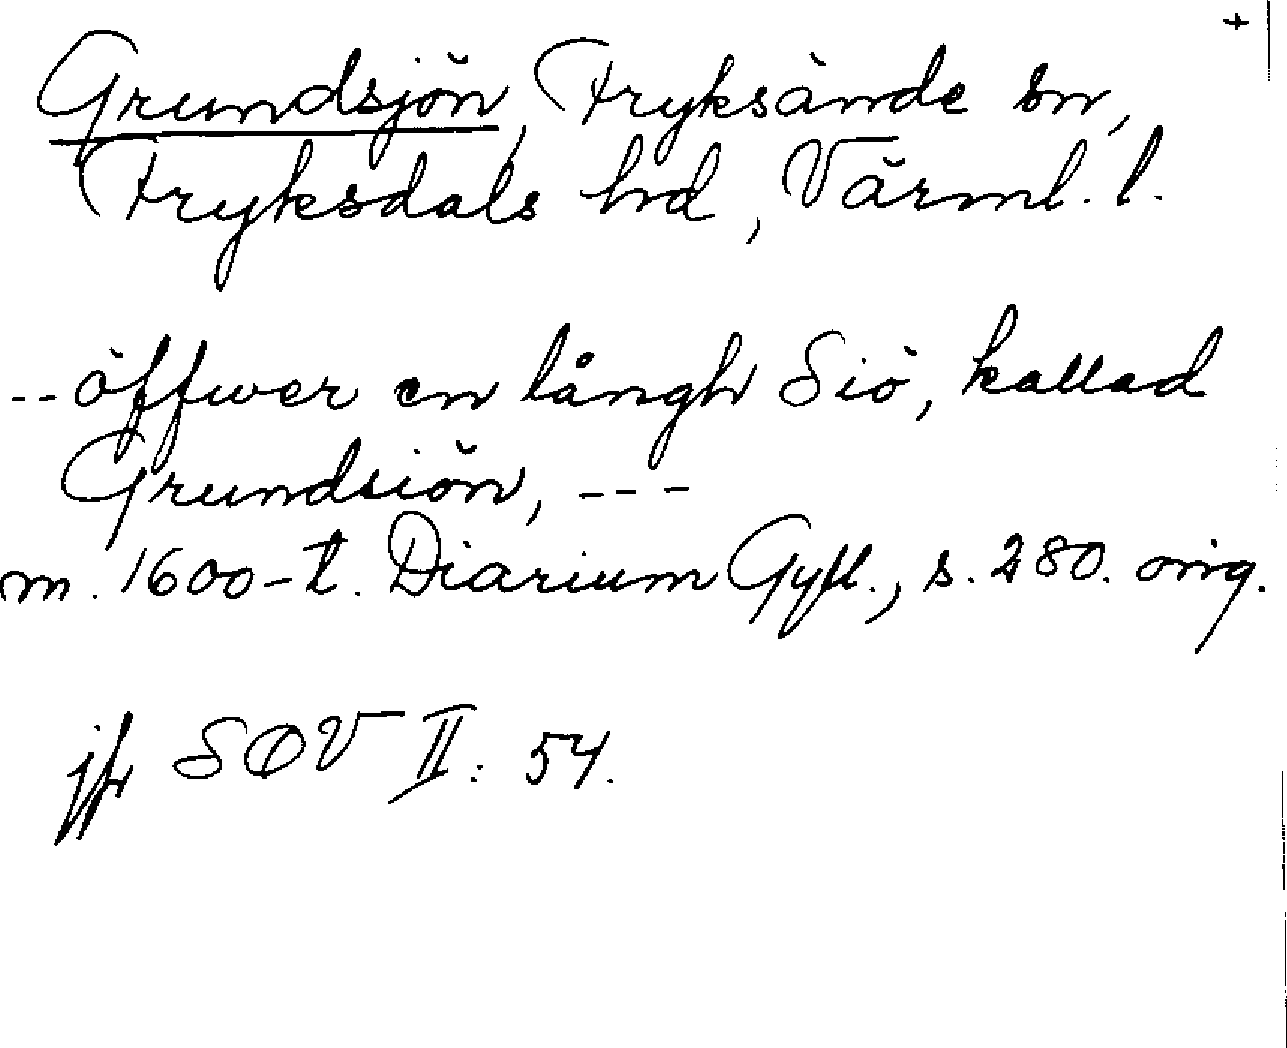 +
Grundsjön, Fryksände sn,
Fryksdals hd, Värml. l.
-- öffwer en långh Siö, kallad
Grundsiön, ---
m. 1600-t. Diarium Gyll., s. 280. orig.
jfr SOV II: 54.